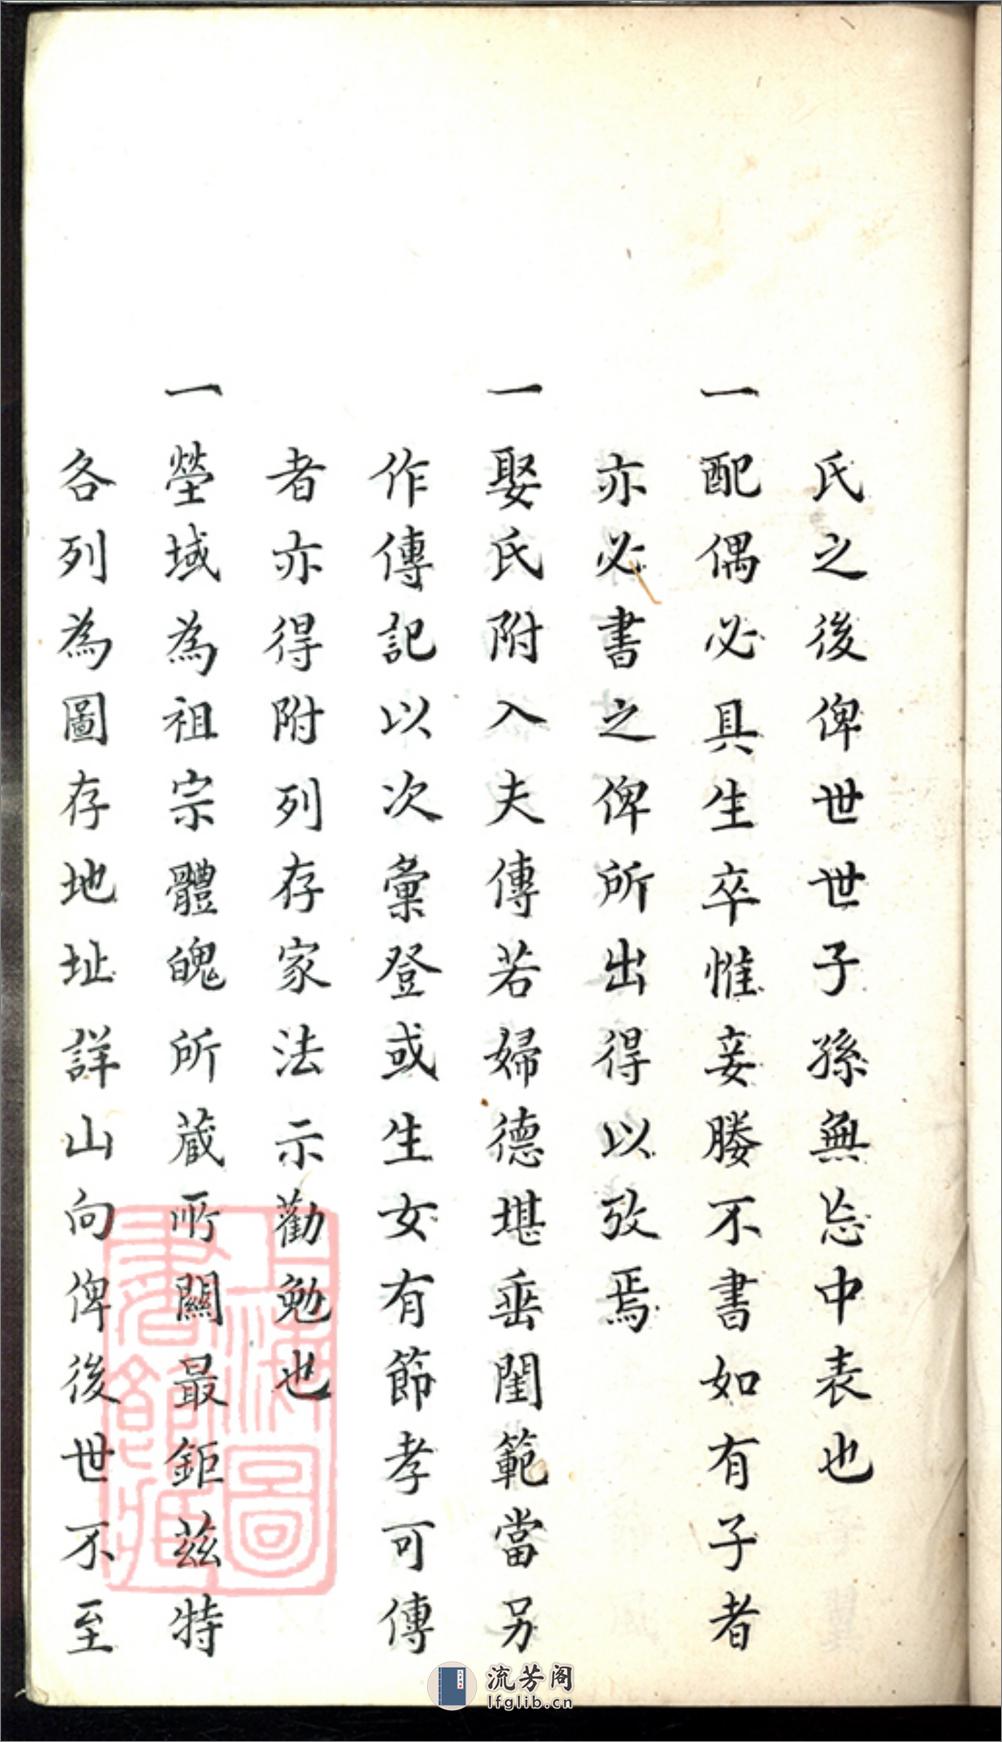 氏之後俾世世子孫無忘中表也
一配偶必具生卒惟妾媵不書如有子者
亦必書之俾所出得以攷焉
一娶氏附入夫傳若婦德堪垂閨範當另
作傳記以次彙登或生女有節孝可傳
者亦得附列存家法示勸勉也
一塋域為祖宗體魄所蔵所關最鉅茲特
各列為圖存地址詳山向俾後世不至
上海圖
書館藏
流芳阁
lfglib.cn